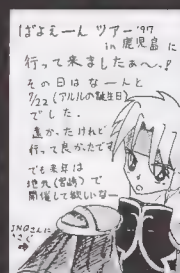 ばよえ〜ん ツアー '97
in 鹿児島 に
行って来ましたぁ〜.!
その日はな〜んと
7/22 (アルルの誕生日)
でした.
遠かったけれど
行って良かったです
でも来年は
地元(宮崎)で
開催して欲しいなー
さんに